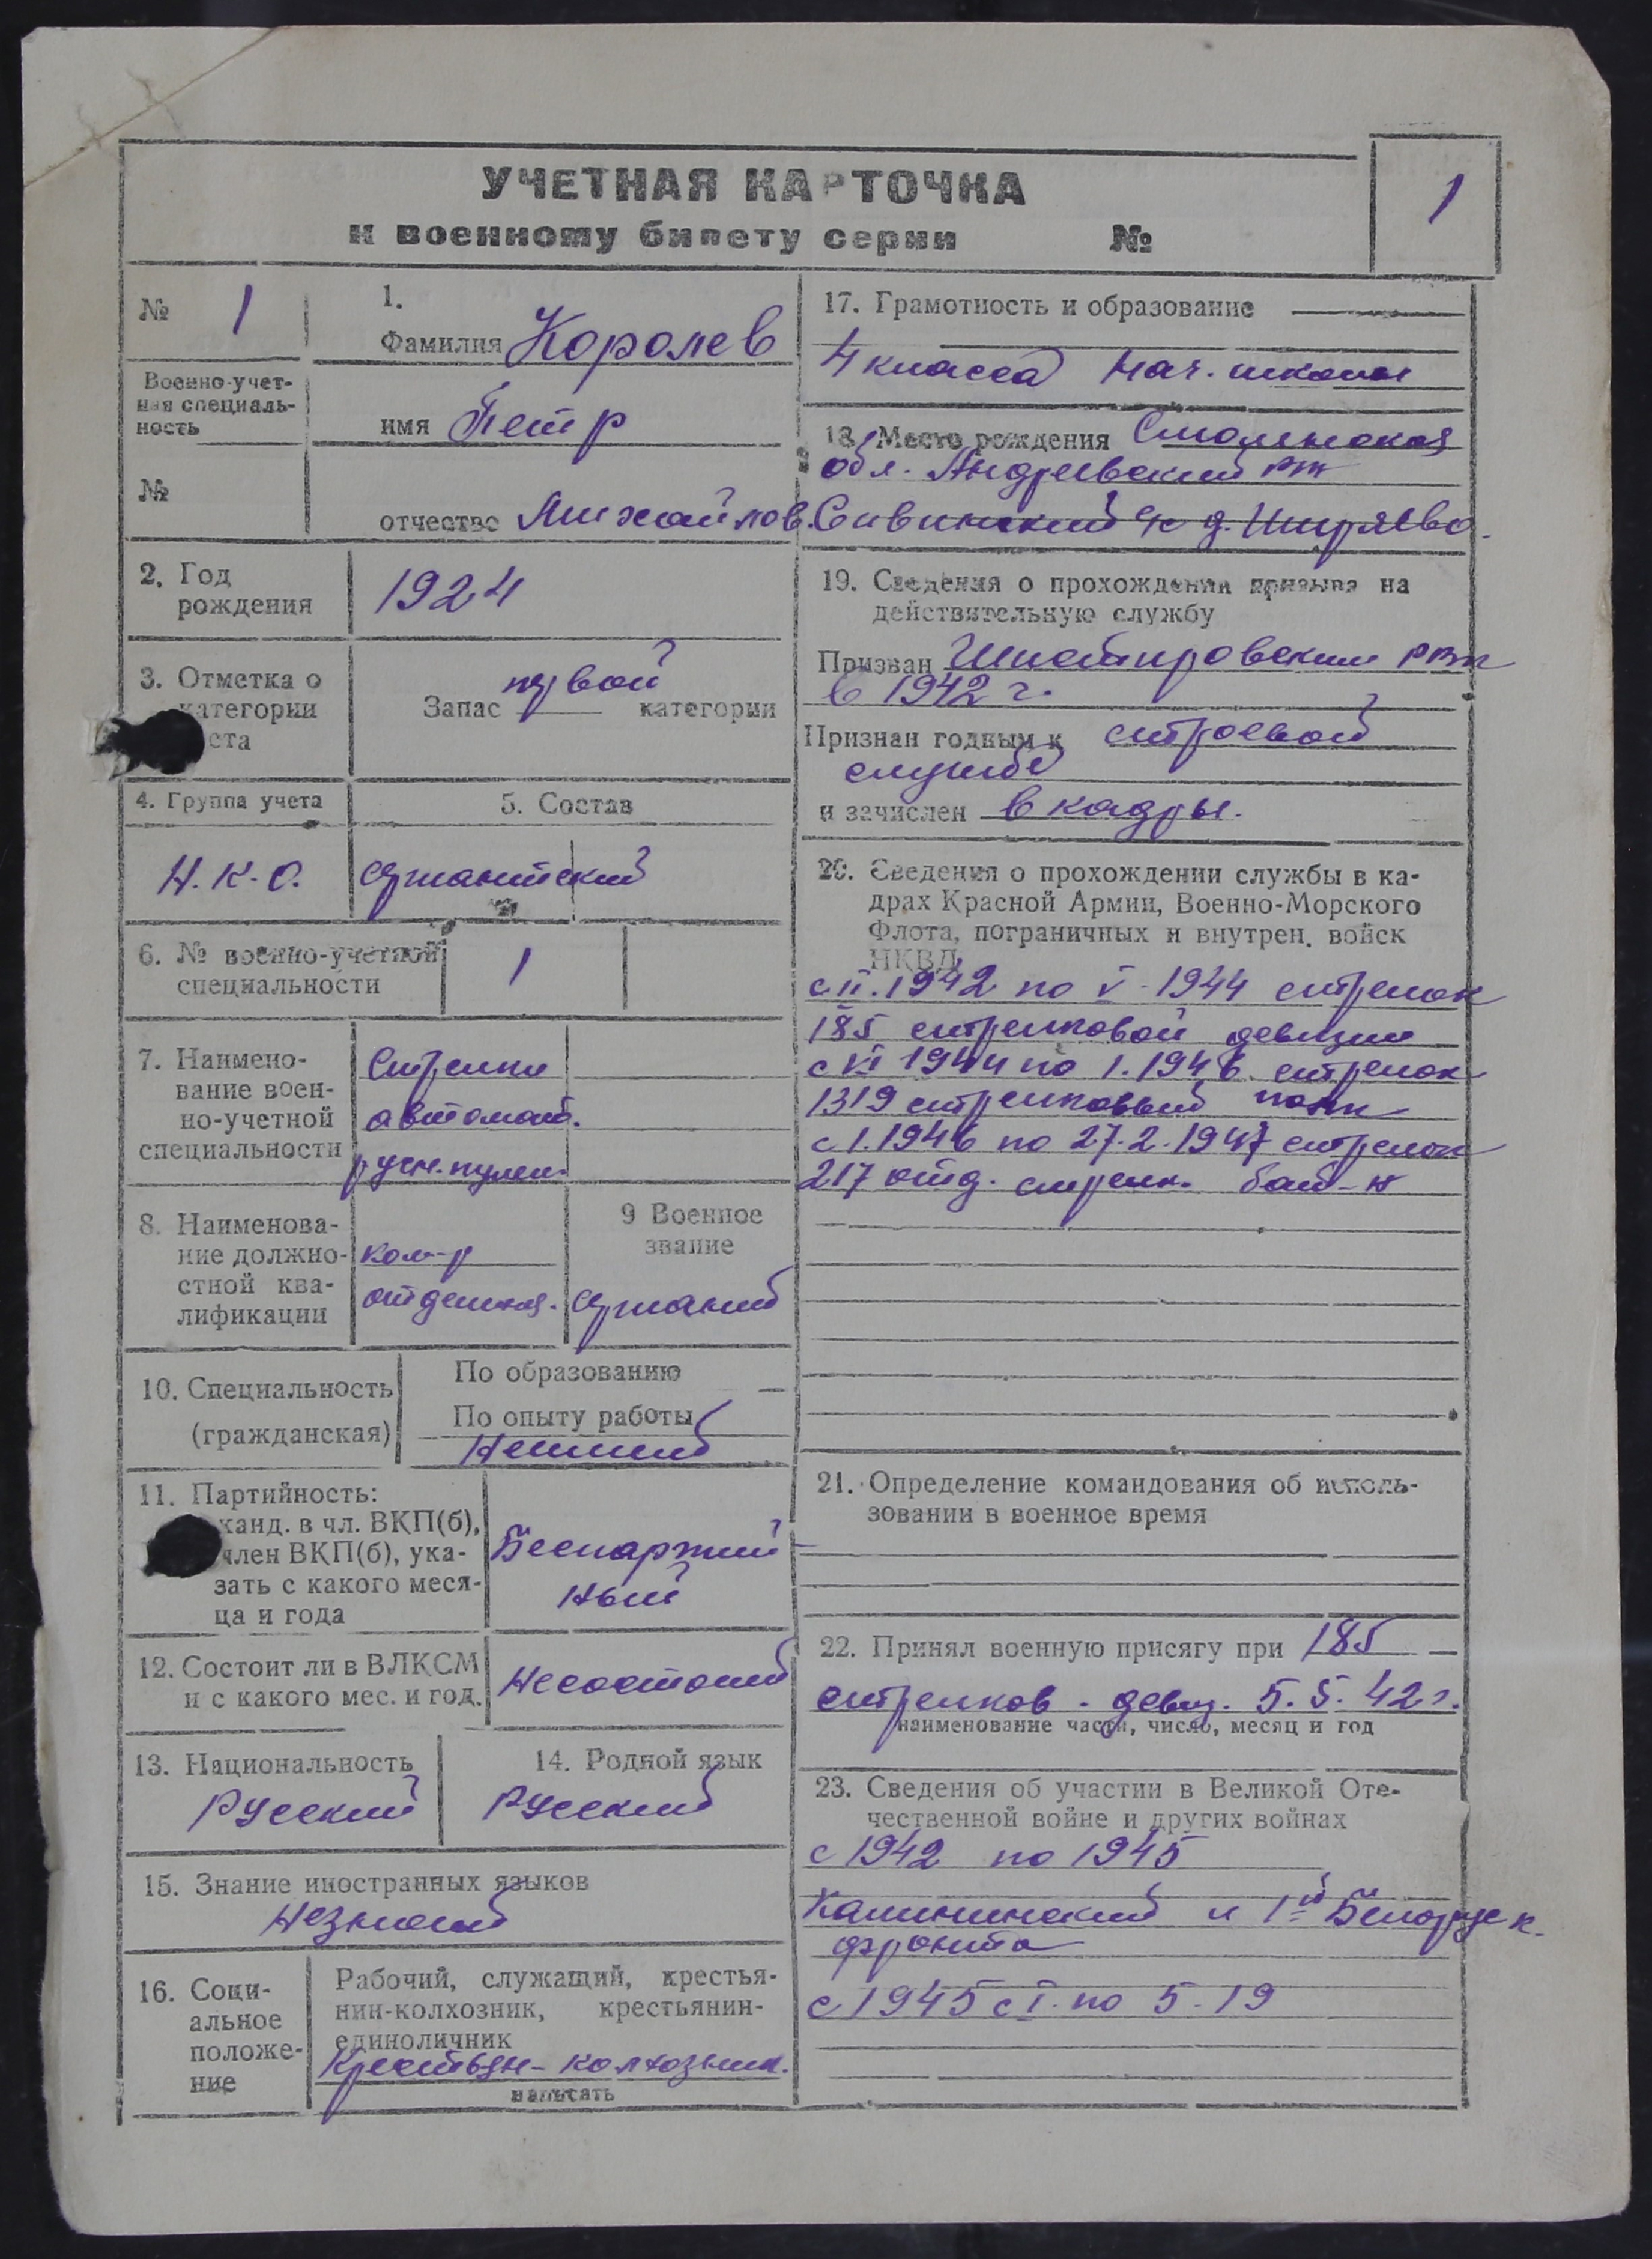 УЧЕТНАЯ КАРТОЧКА
к военному билету серии №
1
№ 1
Военно-учет-
ная специаль-
ность
№
1.
Фамилия Королев
имя Петр
отчество Михайлов.
2. Год
рождения
1924
3. Отметка о
категории
ста
Запас первой категории
4. Группа учета
Н.К.О.
5. Состав
сержантский
6. № военно-учетной
специальности
1
7. Наимено-
вание воен-
но-учетной
специальности
Стрелки
автомат.
ручн. пулем.
8. Наименова-
ние должно-
стной ква-
лификации
ком-р
отделен.
9 Военное
звание
сержант
10. Специальность
(гражданская)
По образованию —
По опыту работы
Неимеет
11. Партийность:
канд. в чл. ВКП(б),
член ВКП(б), ука-
зать с какого меся-
ца и года
Беспартий-
ный
12. Состоит ли в ВЛКСМ
и с какого мес. и год.
Несостоит
13. Национальность
Русский
14. Родной язык
Русский
15. Знание иностранных языков
Незнает
16. Соци-
альное
положе-
ние
Рабочий, служащий, крестья-
нин-колхозник, крестьянин-
единоличник
Крестьян-колхозник.
написать
17. Грамотность и образование
4 класса нач. школы
18. Место рождения Смоленская
обл. Андреевский р-н
Савинский с/с д. Ширяево.
19. Сведения о прохождении призыва на
действительную службу
Призван РВК
в 1942 г.
Признан годным к строевой
службе
и зачислен в кадры.
20. Сведения о прохождении службы в ка-
драх Красной Армии, Военно-Морского
Флота, пограничных и внутрен. войск
НКВД
с II.1942 по V-1944 стрелок
185 стрелковой девизии
с VI 1944 по 1.1946 стрелок
1319 стрелковый полк
с 1.1946 по 27.2.1947 стрелок
217 отд. стрелк. бат-н
21. Определение командования об исполь-
зовании в военное время
22. Принял военную присягу при 185
стрелков. девиз. 5.5.42 г.
наименование части, число, месяц и год
23. Сведения об участии в Великой Оте-
чественной войне и других войнах
с 1942 по 1945
Калининский и 1й Белорусск.
фронта
с 1945 с I. по 5-19